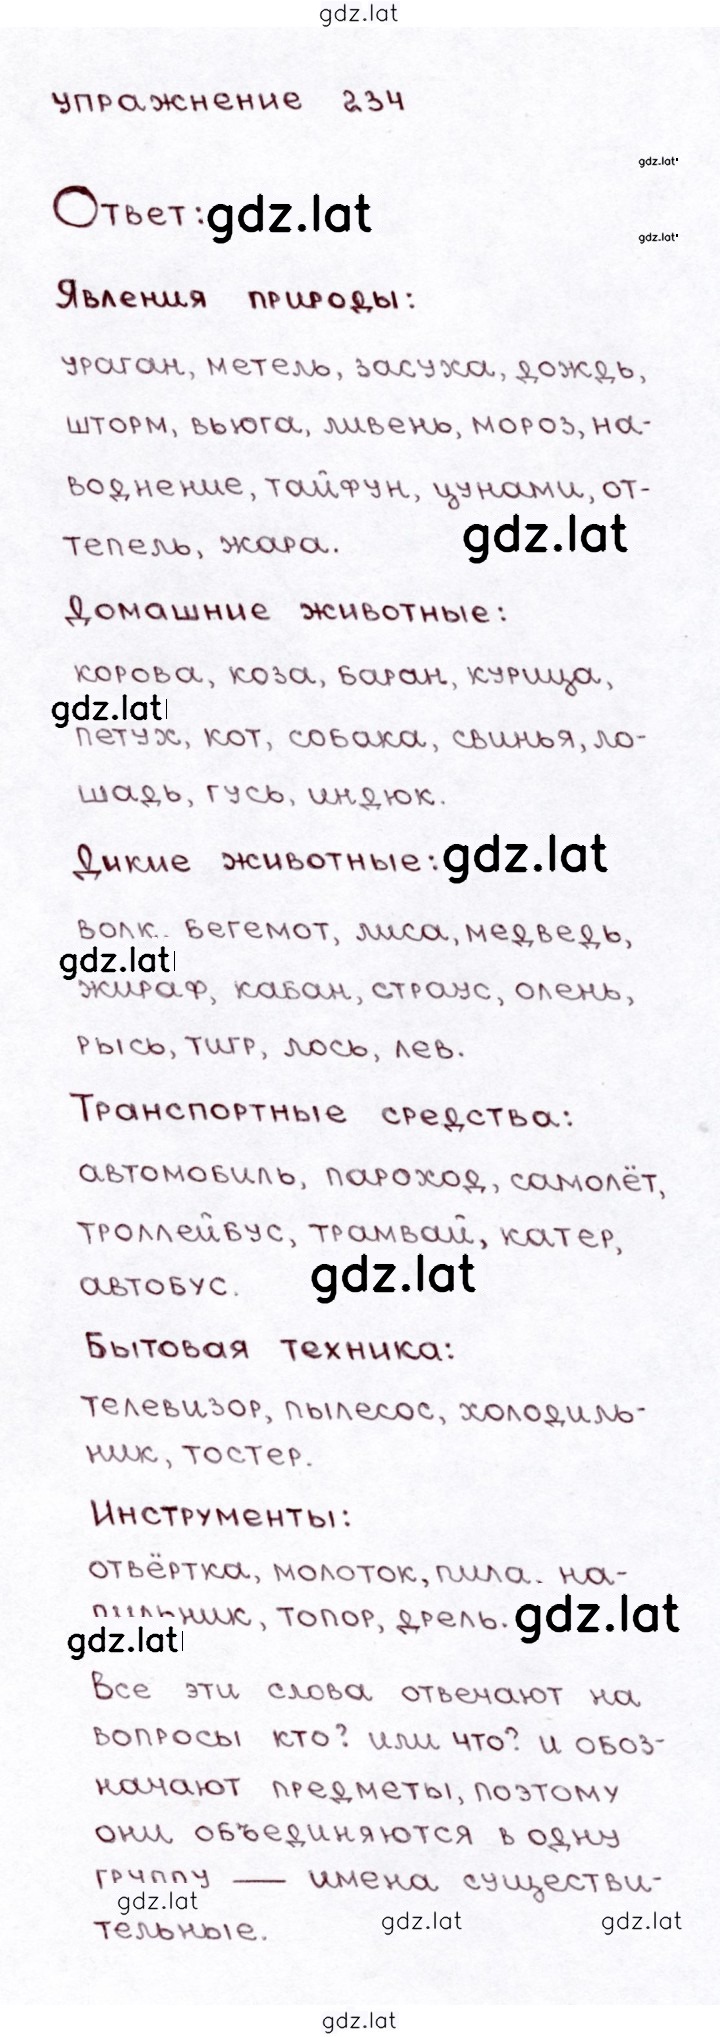 gdz.lat
упражнение 234
gdz.lat
Ответ: gdz.lat
gdz.lat
Явления природы:
ураган, метель, засуха, дождь,
шторм, вьюга, ливень, мороз, на-
воднение, тайфун, цунами, от-
тепель, жара. gdz.lat
Домашние животные:
корова, коза, баран, курица,
gdz.lat
петух, кот, собака, свинья, ло-
шадь, гусь, индюк.
Дикие животные: gdz.lat
волк. бегемот, лиса, медведь,
gdz.lat
жираф, кабан, страус, олень,
рысь, тигр, лось, лев.
Транспортные средства:
автомобиль, пароход, самолёт,
троллейбус, трамвай, катер,
автобус. gdz.lat
Бытовая техника:
телевизор, пылесос, холодиль-
ник, тостер.
Инструменты:
отвёртка, молоток, пила. на-
пильник, топор, дрель. gdz.lat
gdz.lat
Все эти слова отвечают на
вопросы кто? или что? и обоз-
начают предметы, поэтому
они объединяются в одну
группу — имена существи-
gdz.lat
тельные. gdz.lat gdz.lat
gdz.lat